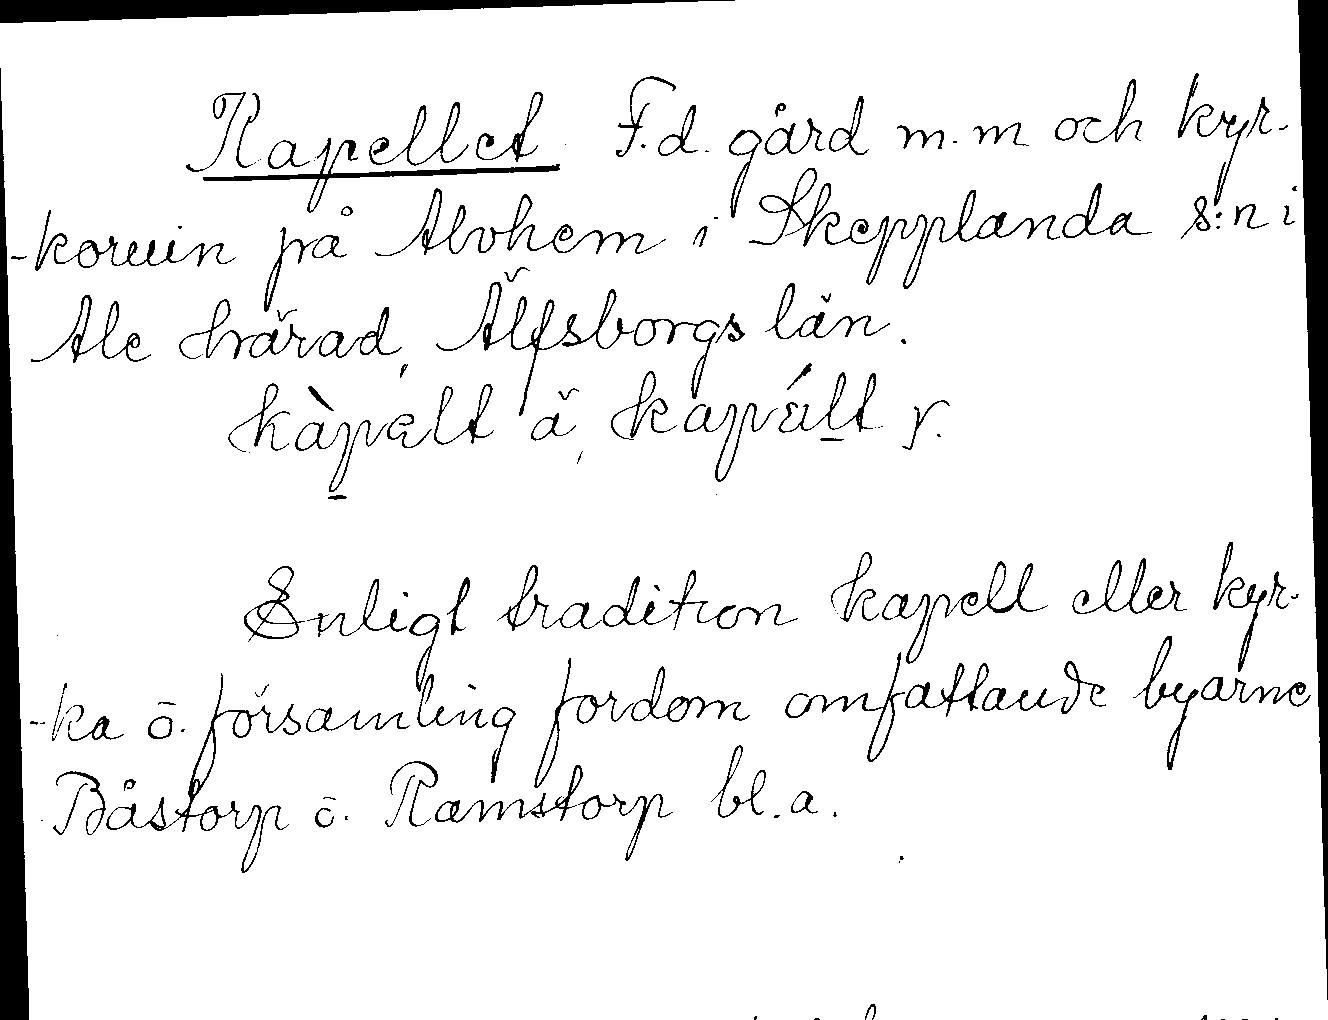 Kapellet F.d. gård m.m och kyr-
-koruin på Alvhem i Skepplanda s:n i
Ale härad, Älfsborgs län.
kàpælt ä, kapǽlt r.
Enligt tradition kapell eller kyr-
-ka ō. församling fordom omfattande byarne
Båstorp ō. Ramstorp bl.a.